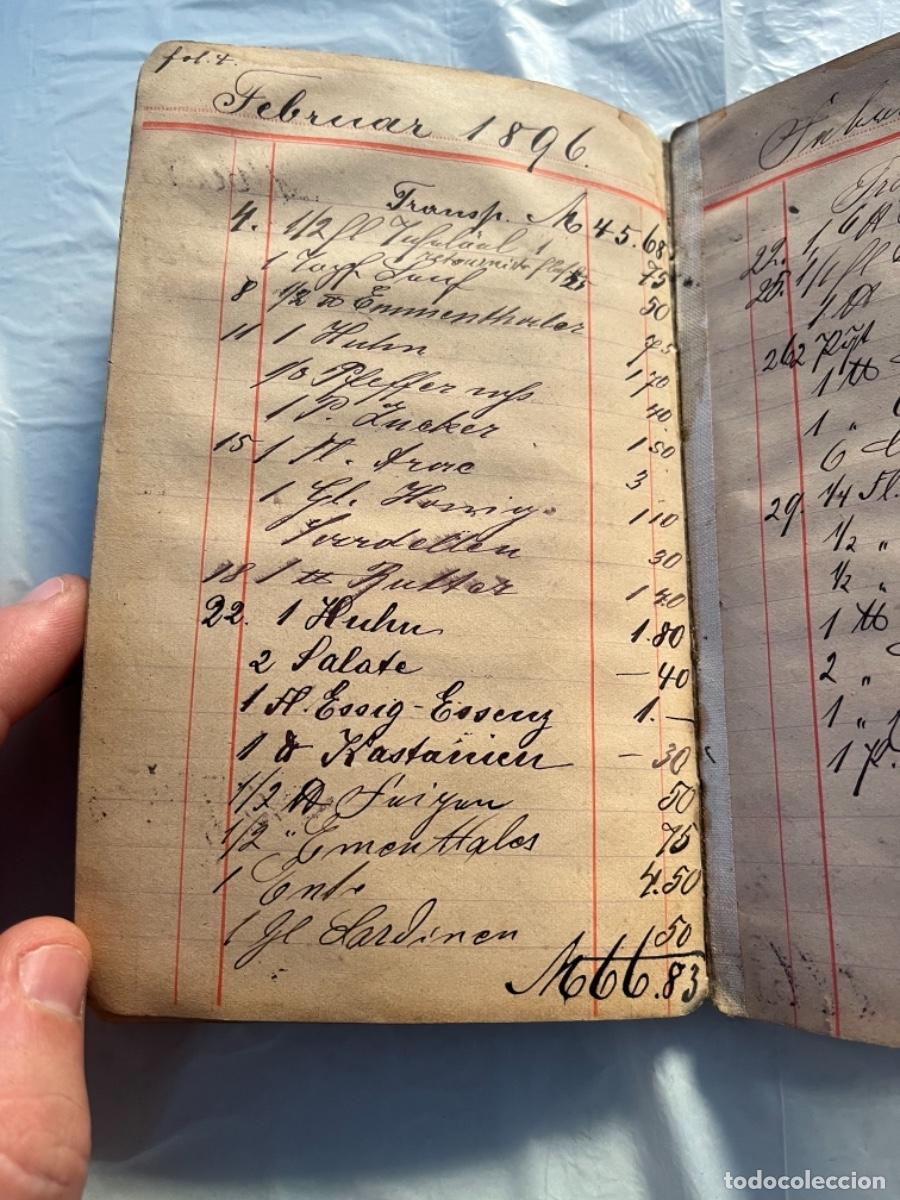 fol. 4.
Februar 1896.
Transp. M 45.68
4. 1/2 fl Tafelöl 1 75
retournirte
1 Topf Senf 50
8 1/2 ℔ Emmenthaler 75
11 1 Huhn 1 70
1/8 Pfeffer 40
1 P. Zucker 1 50
15 1 Fl. Arac 3
1 Gl. Honig. 1 10
Sardellen 30
18 1 ℔ Butter 1 40
22. 1 Huhn 1.80
2 Salate – 40
1 Fl. Essig-Essenz 1.–
1 ℔ Kastanien – 30
1/2 ℔ Feigen 50
1/2 " Ementhales 75
1 Ente 4.50
1 Gl Sardinen 50
M 66.83
22. 1
25. 1/1 fl
1 ℔
26 2 Pfd
1 ℔
1 "
6
29. 1/4 Fl.
1/2 "
1/2 "
1 ℔
2 "
1 "
1 P.
todocoleccion